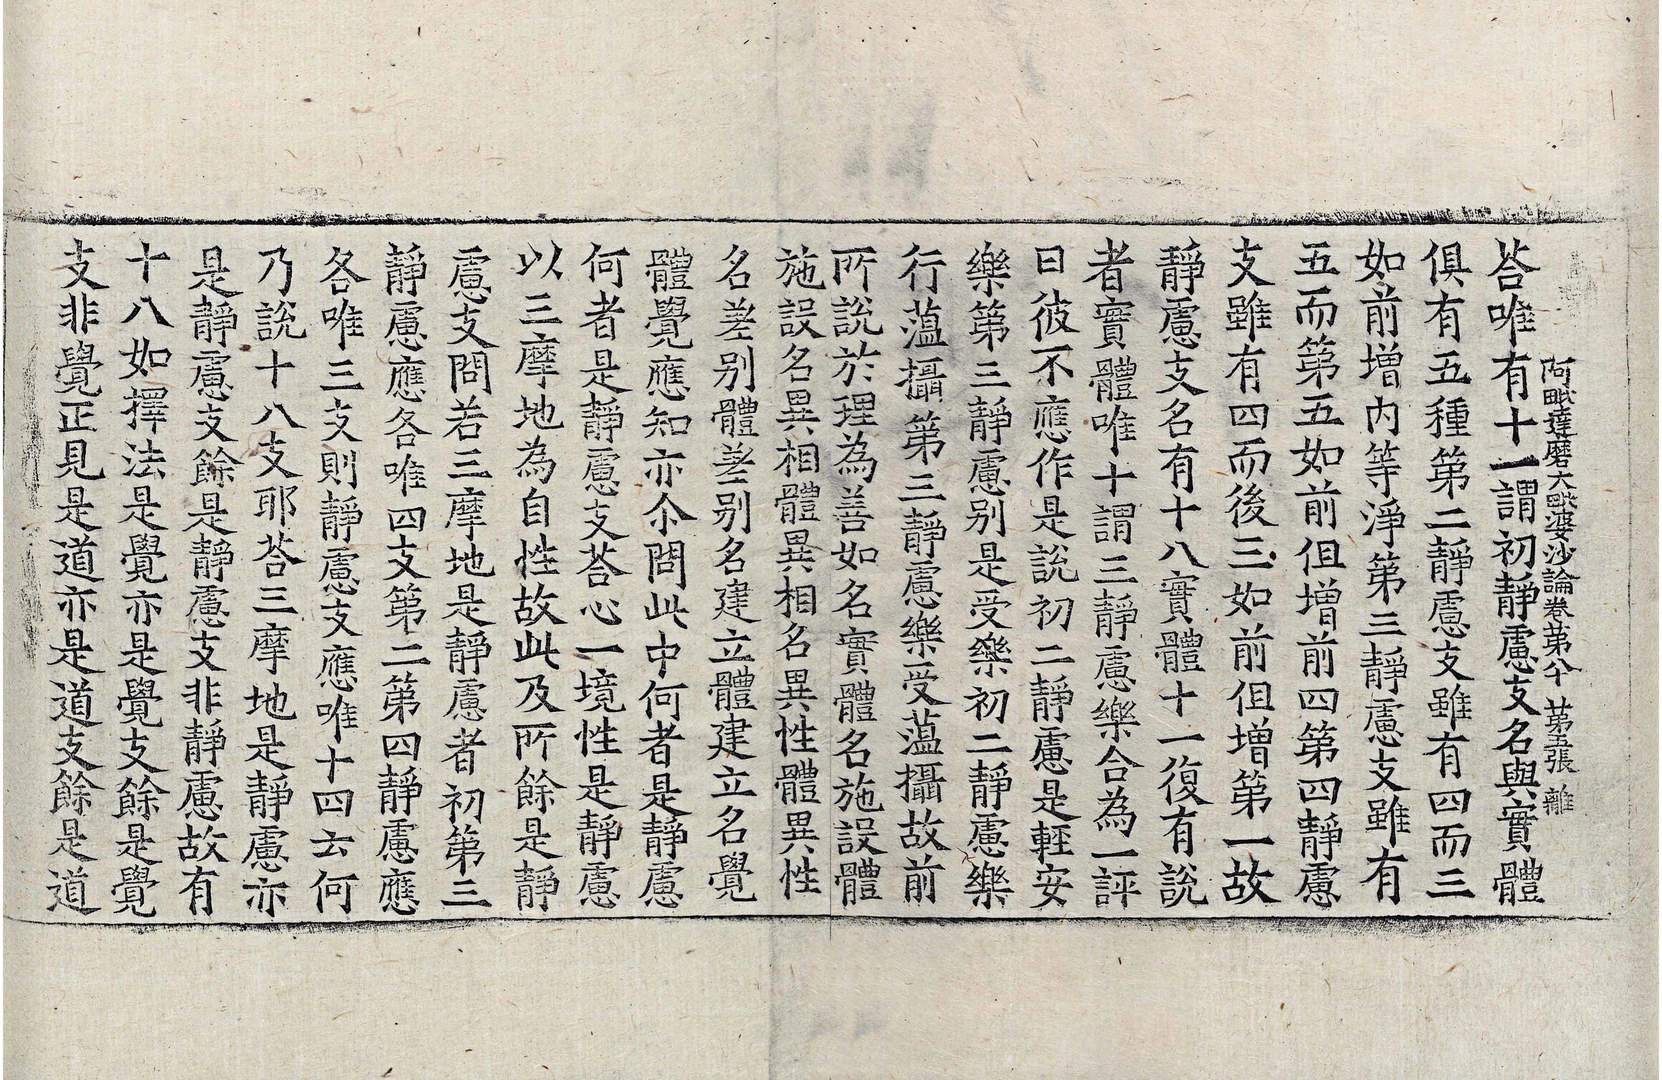 阿毗達磨大毗婆沙論卷第八十 第五張 離
荅唯有十一謂初靜慮支名與實體
俱有五種第二靜慮支雖有四而三
如前增内等淨第三靜慮支雖有
五而第五如前但增前四第四靜慮
支雖有四而後三如前但增第一故
靜慮支名有十八實體十一復有說
者實體唯十謂三靜慮樂合為一評
曰彼不應作是說初二靜慮是輕安
樂第三靜慮别是受樂初二靜慮樂
行薀攝第三靜慮樂受薀攝故前
所說於理為善如名實體名施設體
施設名異相體異相名異性體異性
名差别體差别名建立體建立名覺
體覺應知亦尒問此中何者是靜慮
何者是靜慮支荅心一境性是靜慮
以三摩地為自性故此及所餘是靜
慮支問若三摩地是靜慮者初第三
靜慮應各唯四支第二第四靜慮應
各唯三支則靜慮支應唯十四云何
乃說十八支耶荅三摩地是靜慮亦
是靜慮支餘是靜慮支非靜慮故有
十八如擇法是覺亦是覺支餘是覺
支非覺正見是道亦是道支餘是道